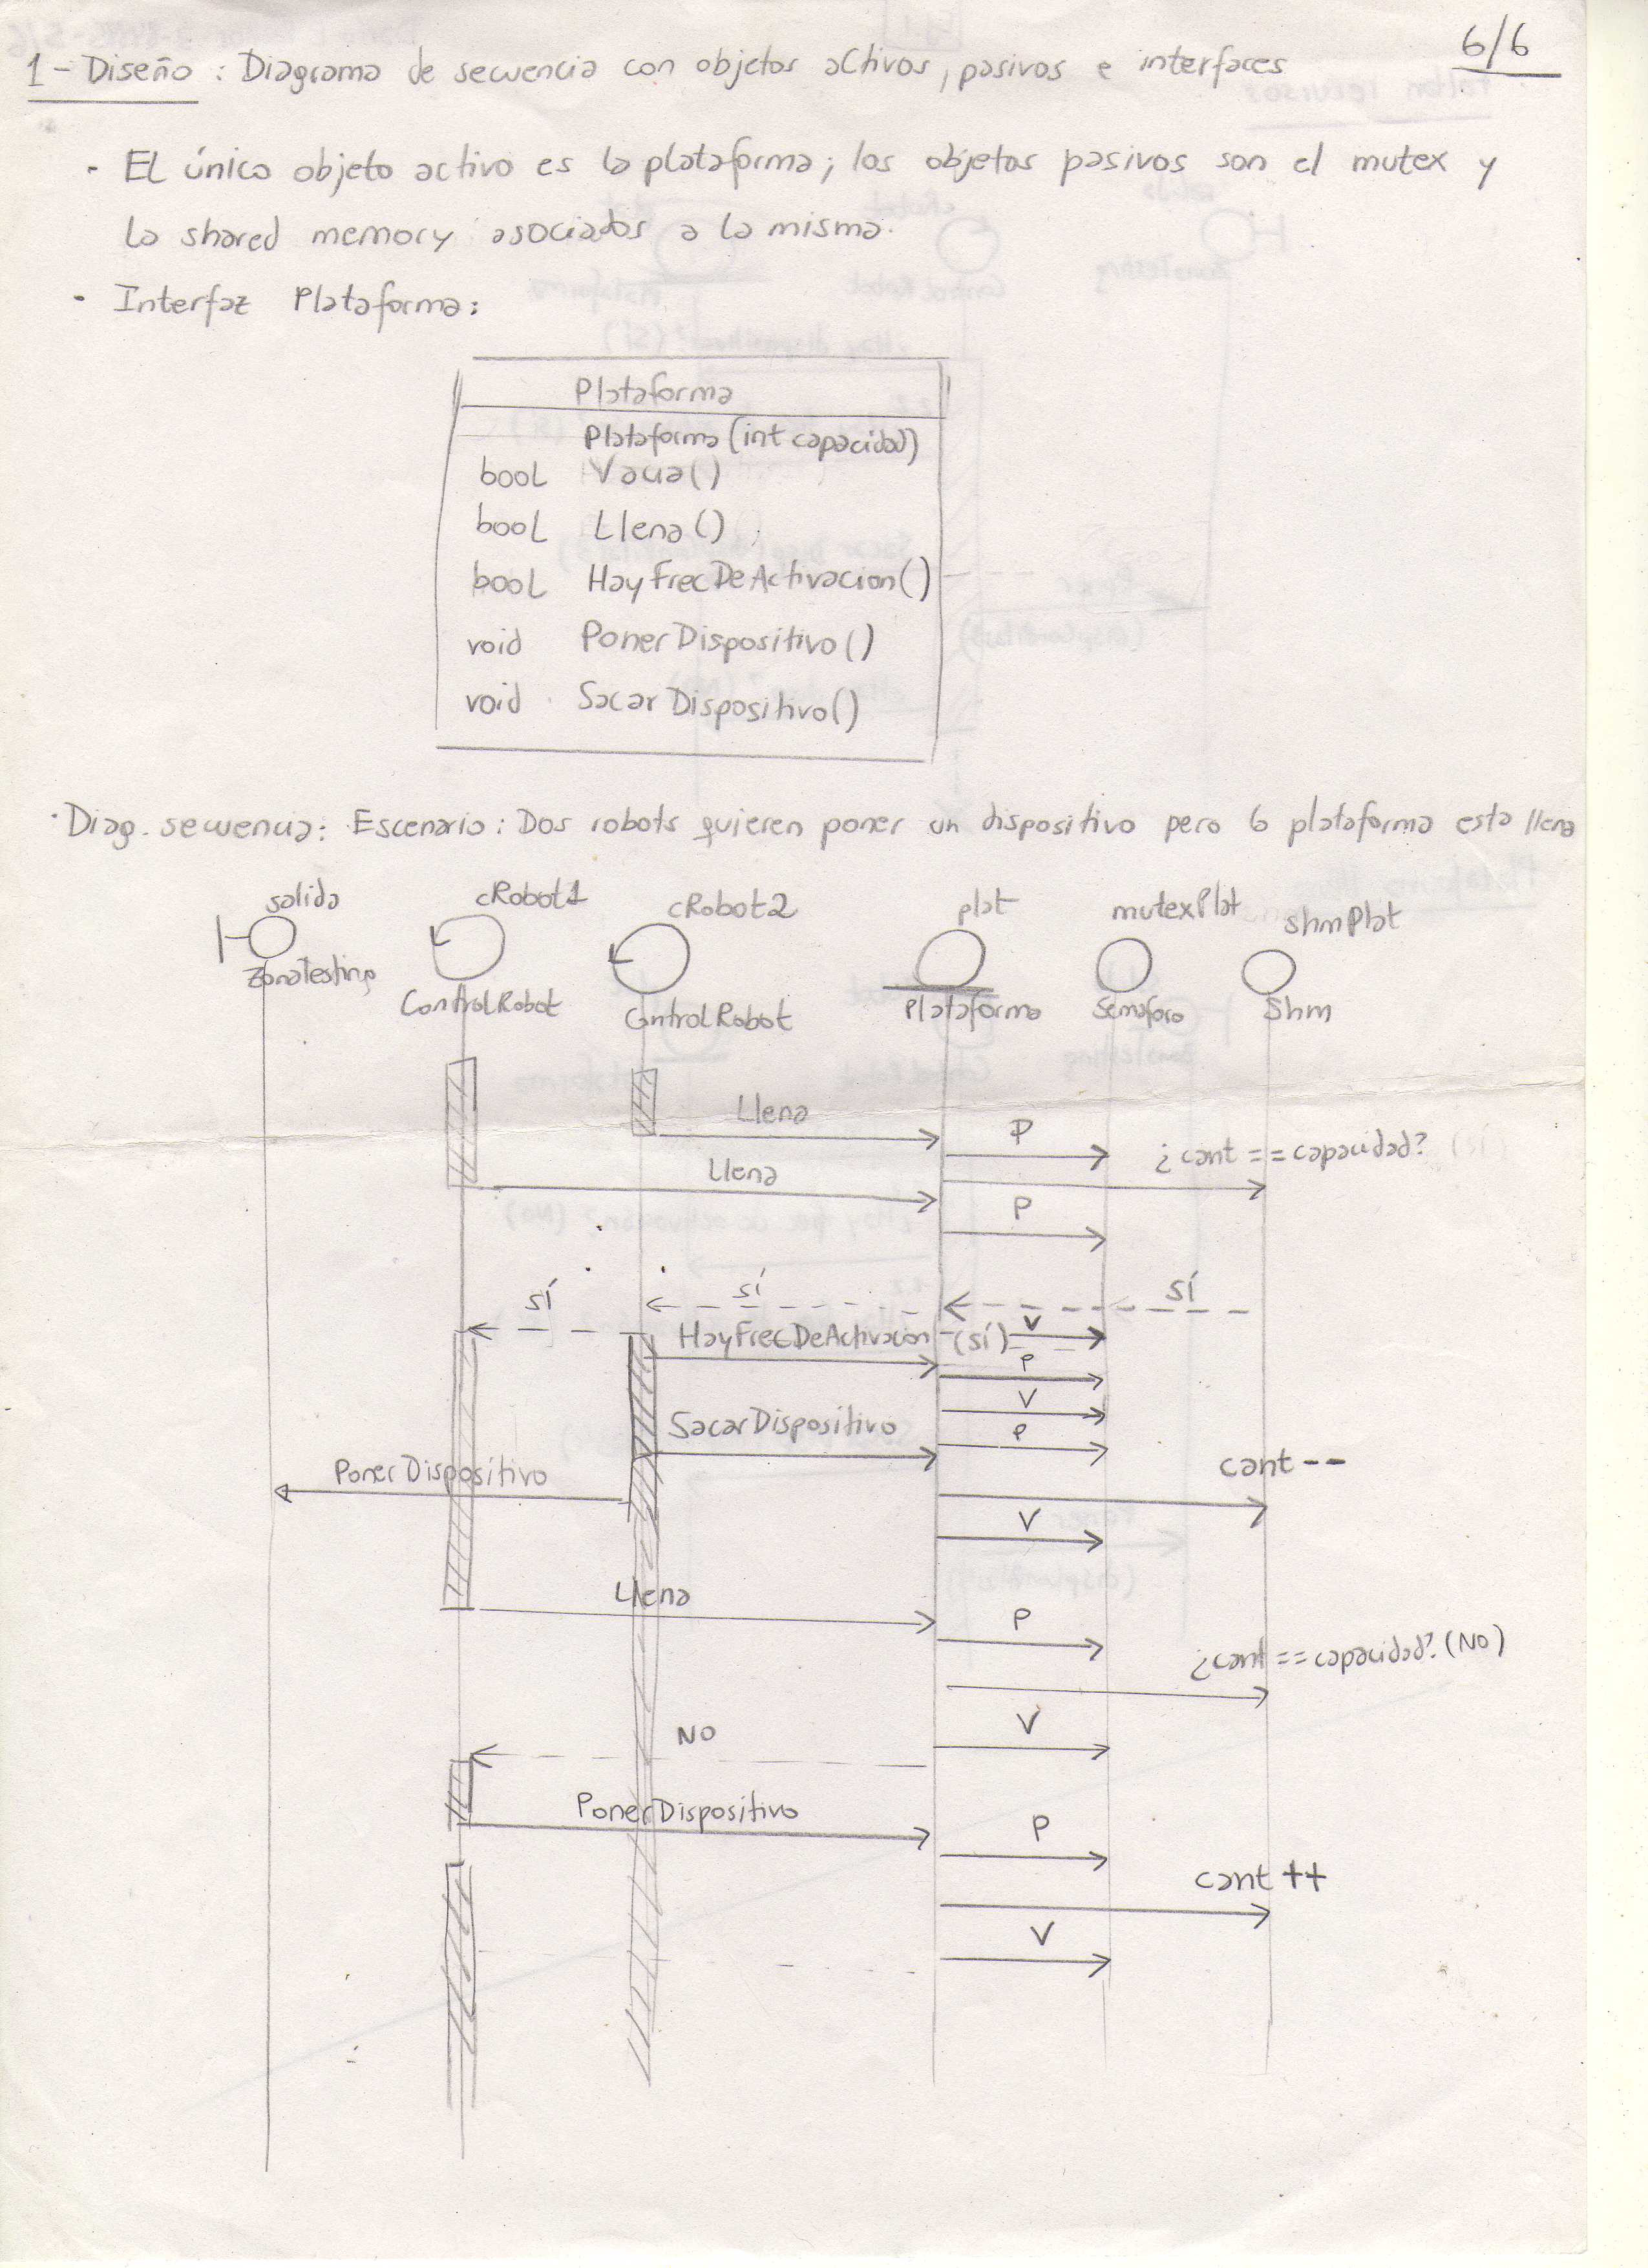 6/6
1 - Diseño : Diagrama de secuencia con objetos activos, pasivos e interfaces
- El único objeto activo es la plataforma; los objetos pasivos son el mutex y
la shared memory asociados a la misma.
- Interfaz Plataforma:
Plataforma
Plataforma (int capacidad)
bool Vacia()
bool Llena()
bool HayFrecDeActivacion()
void PonerDispositivo()
void SacarDispositivo()
Diag. secuencia: Escenario: Dos robots quieren poner un dispositivo pero la plataforma esta llena
salida cRobot1 cRobot2 plat mutexPlat shmPlat
ZonaTesting ControlRobot ControlRobot Plataforma Semaforo Shm
Llena P ¿cant == capacidad? (sí)
Llena
P
sí sí sí
HayFrecDeActivacion (sí) V
P
V
SacarDispositivo P
PonerDispositivo cant --
V
Llena P
¿cant == capacidad? (NO)
NO V
PonerDispositivo P
cant ++
V